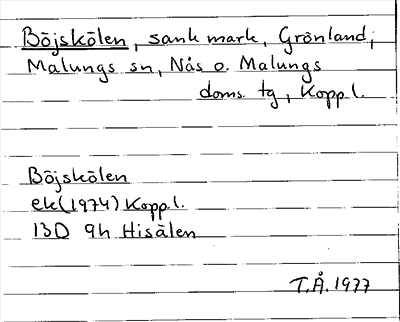 Böjskölen, sank mark, Grönland,
Malungs sn, Nås o. Malungs
doms. tg, Kopp l.
Böjskölen
ek(1974) Kopp.l.
13D 9h Hisälen
T.Å. 1977